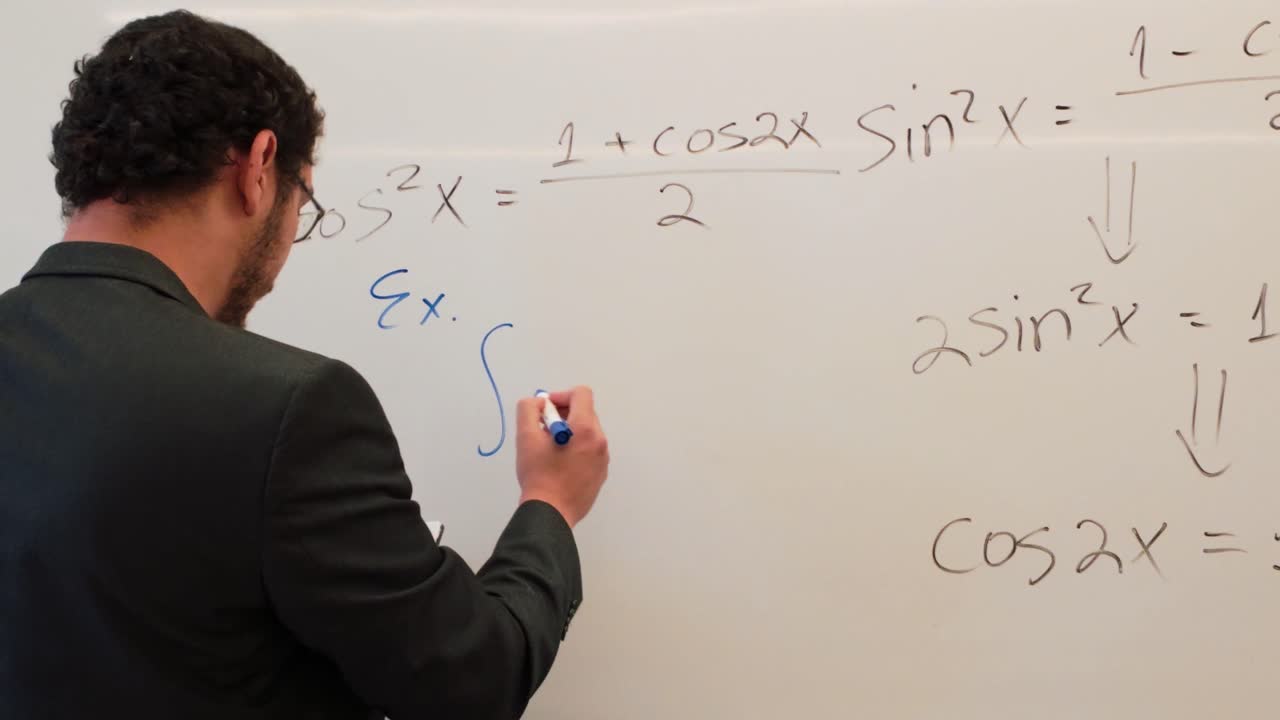 cos²x = (1 + cos2x)/2
sin²x = (1 - c
2
⇓
2sin²x = 1
⇓
cos2x =
Ex.
∫